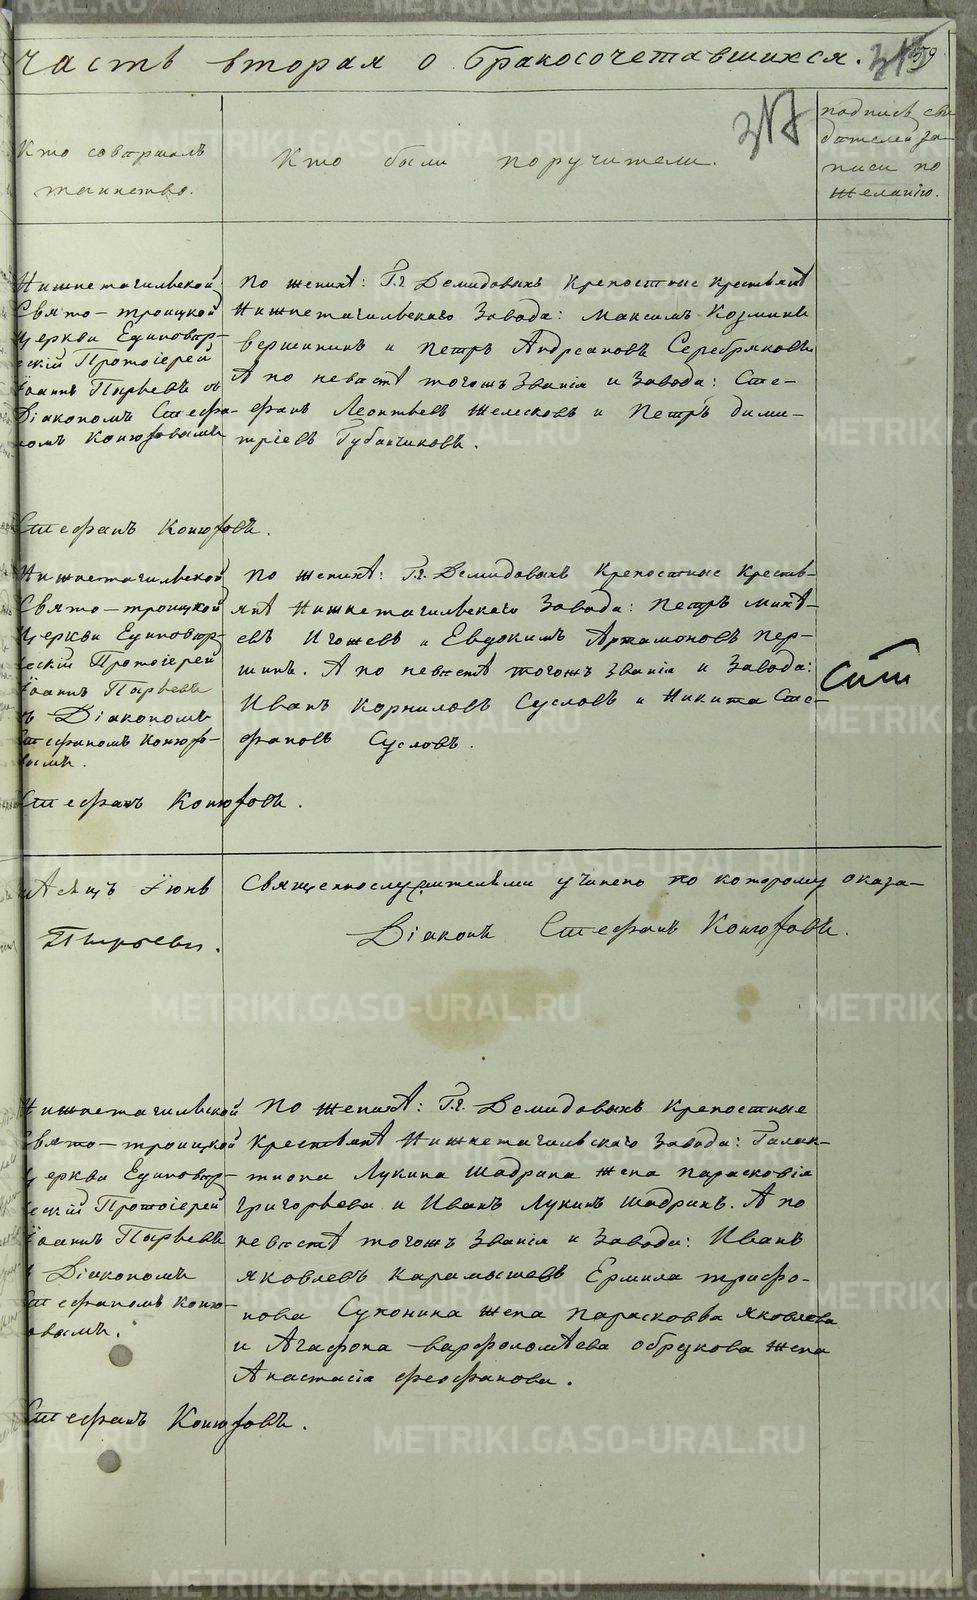 Часть вторая о бракосочетавшихся.
317
Кто совершалъ
таинство.
Кто были поручители.
подпись сви
дѣтелей за-
писи по
желанію.
Нижнетагильской
Свято-троицкой
церкви Единовѣр-
ескій Протоіерей
Іоаннъ Пырьевъ съ
Діакономъ Стефа-
номъ Конюховымъ
По женихѣ: Гг. Демидовыхъ крепостные крестьянѣ
Нижнетагильскаго Завода: Максимъ Козминъ
вершининъ и Петръ Андреановъ Серебряковъ
А по невѣстѣ тогожъ Званія и Завода: Сте-
фанъ Леонтьевъ Желесковъ и Петръ дими-
тріевъ Губанчиковъ.
Стефанъ Конюховъ.
Нижнетагильской
Свято-троицкой
Церкви Единовѣр-
ескій Протоіерей
Іоаннъ Пырьевъ
ъ Діакономъ
Стефаномъ Конюхо-
вымъ.
По женихѣ: Гг. Демидовыхъ крепостные кресть-
янѣ Нижнетагильскаго Завода: Петръ михѣ-
евъ Игошевъ и Евдокимъ Артамоновъ пер-
шинъ. А по невѣстѣ тогожъ званія и Завода:
Иванъ Корниловъ Сусловъ и Никита Сте-
фановъ Сусловъ.
Стефанъ Конюховъ.
Мѣсяцъ Іюнь
Священнослужителями учинено по которому оказа-
Пырьевъ.
Діаконъ Стефанъ Конюховъ.
Нижнетагильской
Свято-троицкой
Церкви Единовѣр-
ескій Протоіерей
Іоаннъ Пырьевъ
ъ Діакономъ
Стефаномъ Коню-
ховымъ.
По женихѣ: Гг. Демидовыхъ крепостные
крестьянѣ Нижнетагильскаго завода: Галак-
тиона Лукина Шадрина жена парасковія
григорьева и Иванъ Лукинъ Шадринъ. А по
невѣстѣ тогожъ Званія и Завода: Иванъ
яковлевъ карамышевъ Ермила трифо-
нова Сухонина жена парасковва яковлева
и Агафона варфоломѣева обрезкова жена
Анастасія феофанова.
Стефанъ Конюховъ.
METRIKI.GASO-URAL.RU